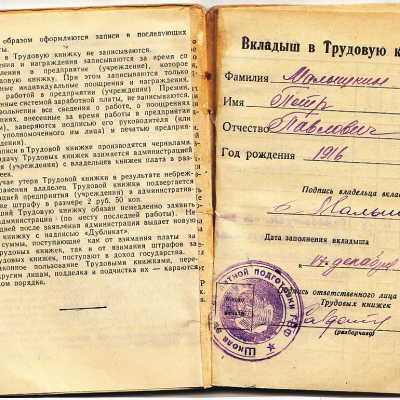 образом оформляются записи в последующих
в Трудовую книжку не записываются.
награждениях и поощрениях записываются за время со
ления в предприятие (учреждение), которое
книжку. При этом записываются только
ные индивидуальные поощрения и награждения,
работой в предприятии (учреждении). Премии,
ные системой заработной платы, не записываются.
вольнении все сведения о работе, о поощрениях
ниях, внесенные за время работы в предприятии
заверяются подписью его руководителя (или
уполномоченного им лица) и печатью предприя-
писи в Трудовой книжке производятся чернилами.
дачу Трудовых книжек взимается администрацией
(учреждения) с владельцев книжек плата в раз-
копеек.
учае утери Трудовой книжки в результате небреж-
хранения владелец Трудовой книжки подвергается
рацией предприятия (учреждения) в административ-
штрафу в размере 2 руб. 50 коп.
ший Трудовую книжку обязан немедленно заявить
администрации (по месту последней работы). Не
дней после заявления администрация выдает новую
книжку с надписью «Дубликат».
суммы, поступающие как от взимания платы за
рудовых книжек, так и от взимания штрафов за
удовых книжек, поступают в доход государства.
законное пользование Трудовыми книжками, пере-
другим лицам, подделка и подчистка их — караются
ном порядке.
Вкладыш в Трудовую к
Фамилия Малышкин
Имя Петр
Отчество Павлович
Год рождения 1916
Подпись владельца вкла
Дата заполнения вкладыша
14 декабря
Подпись ответственного лица
Трудовых книжек
(разборчиво)
Школа
ной подготовки ГВФ